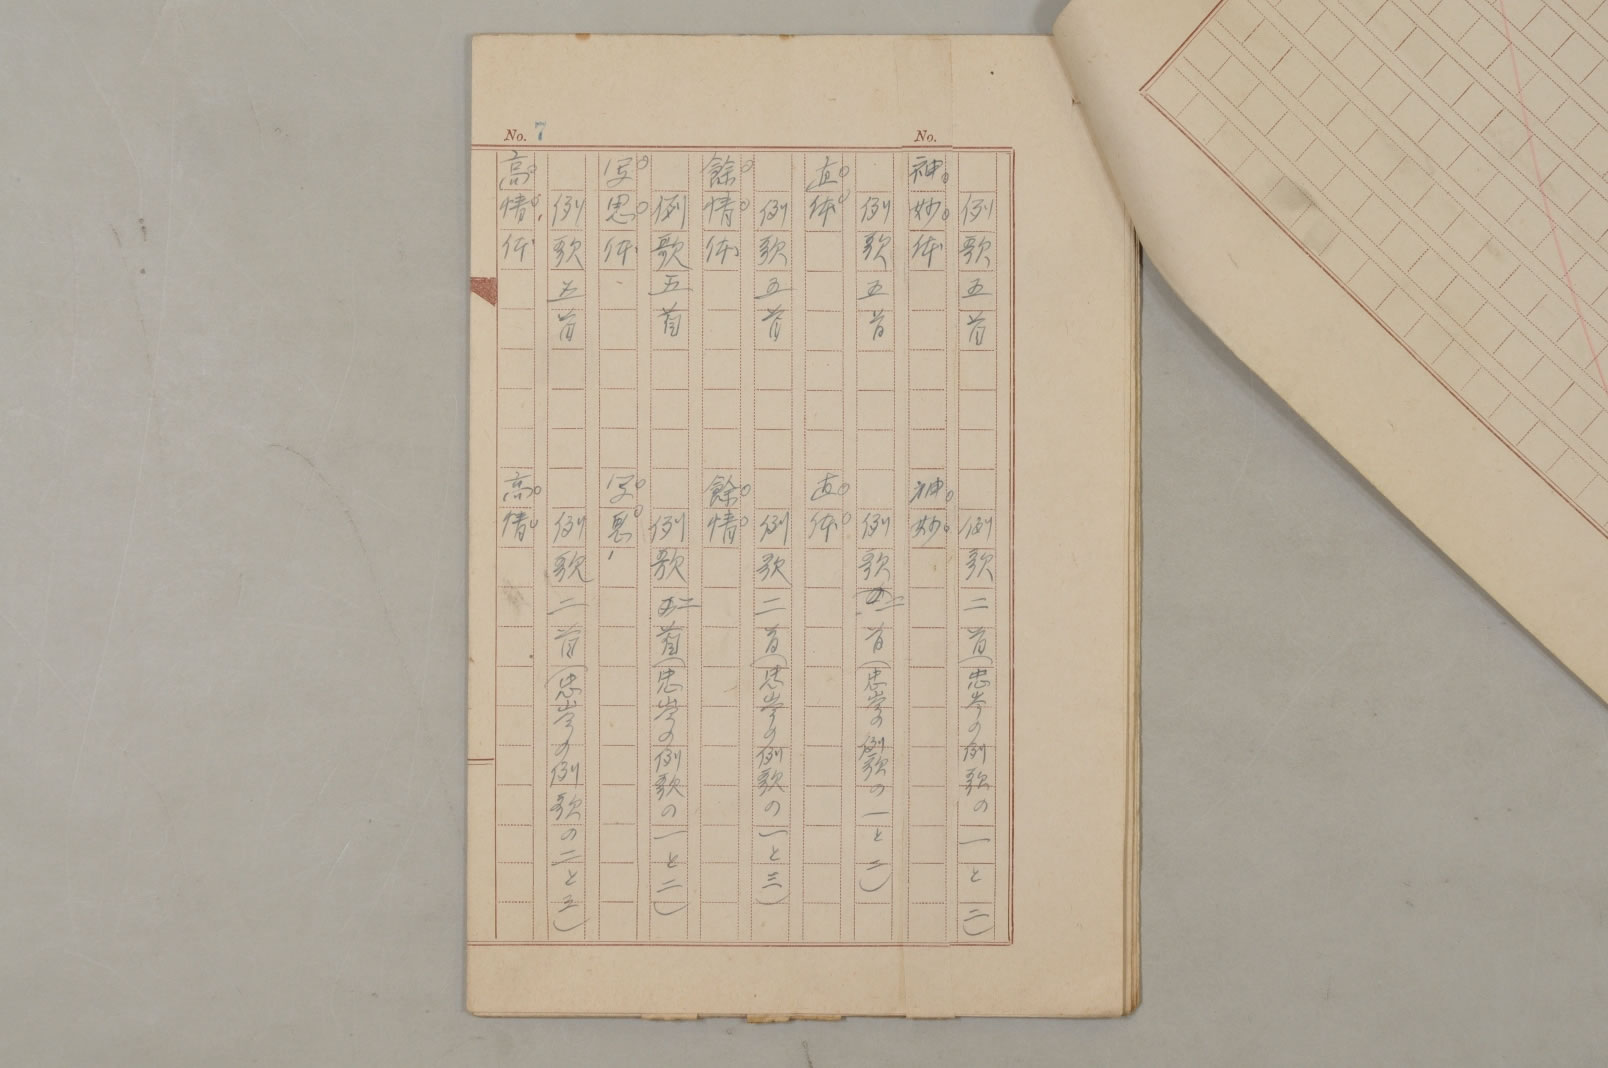 No. 7
No.
例歌五首 例歌二首(忠岑の例歌の一と二)
神妙体 神妙
例歌五首 例歌二首(忠岑の例歌の一と二)
直体 直体
例歌五首 例歌二首(忠岑の例歌の一と三)
餘情体 餘情
例歌五首 例歌二首(忠岑の例歌の一と二)
写思体 写思
例歌五首 例歌二首(忠岑の例歌の二と五)
高情体 高情